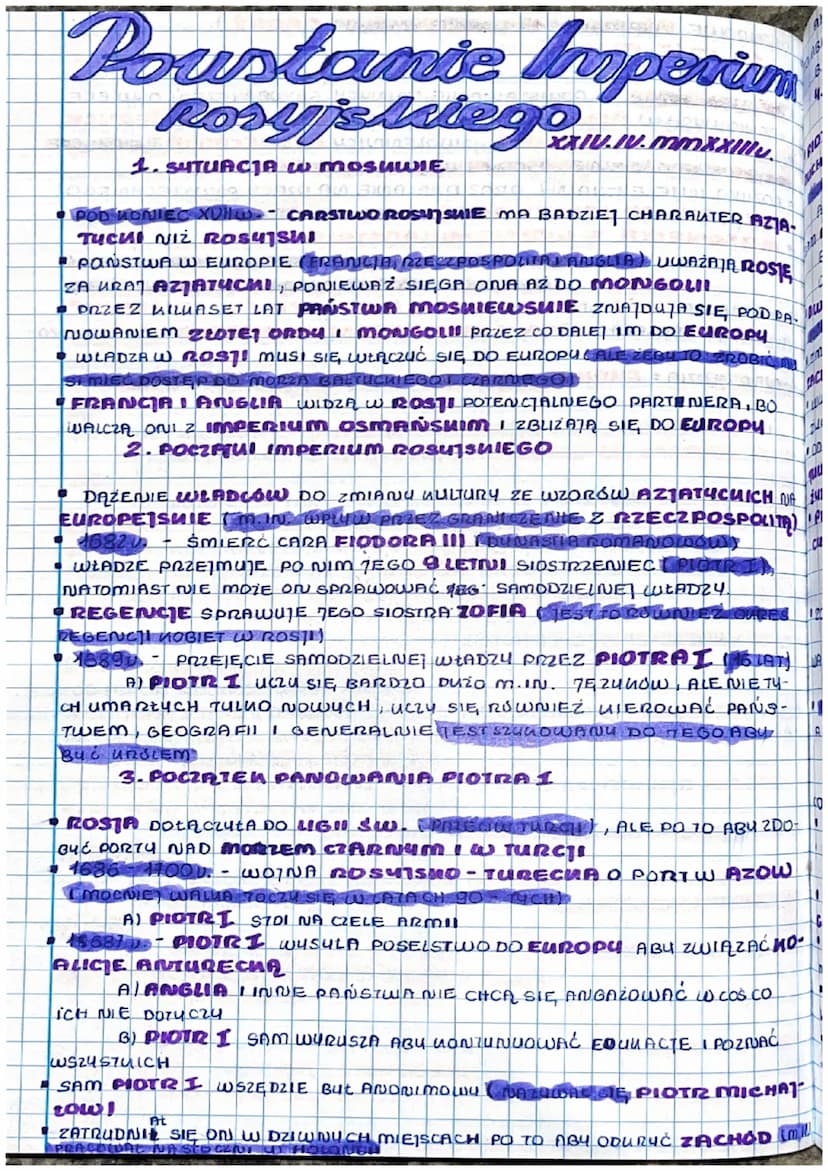 Powstanie Imperium
Rosyjskiego
XXIV.IV.MMXXIIIr.
1. SYTUACJA W MOSKWIE
▪ POD KONIEC XVII w. - CARSTWO ROSYJSKIE MA BADZIEJ CHARAKTER AZJA-
TYCKI NIŻ ROSYJSKI
▪ PAŃSTWA W EUROPIE (FRANCJA, RZECZPOSPOLITA I ANGLIA) UWAŻAJĄ ROSJĘ
ZA KRAJ AZJATYCKI, PONIEWAŻ SIĘGA ONA AŻ DO MONGOLII
▪ PRZEZ KILKASET LAT PAŃSTWA MOSKIEWSKIE ZNAJDUJĄ SIĘ POD PA-
NOWANIEM ZŁOTEJ ORDY I MONGOLII PRZEZ CO DALEJ IM DO EUROPY
▪ WŁADZA W ROSJI MUSI SIĘ WŁĄCZYĆ SIĘ DO EUROPY (ALE ŻEBY TO ZROBIĆ MU
SI MIEĆ DOSTĘP DO MORZA BAŁTYCKIEGO I CZARNEGO)
▪ FRANCJA I ANGLIA WIDZĄ W ROSJI POTENCJALNEGO PARTNERA, BO
WALCZĄ ONI Z IMPERIUM OSMAŃSKIM I ZBLIŻAJĄ SIĘ DO EUROPY
2. POCZĄTKI IMPERIUM ROSYJSKIEGO
▪ DĄŻENIE WŁADCÓW DO ZMIANY KULTURY ZE WZORÓW AZJATYCKICH NA
EUROPEJSKIE (M.IN. WPŁYW PRZEZ GRANICZENIE Z RZECZPOSPOLITĄ)
▪ 1682r. - ŚMIERĆ CARA FIODORA III (DYNASTIA ROMANOWÓW)
▪ WŁADZE PRZEJMUJE PO NIM JEGO 9 LETNI SIOSTRZENIEC (PIOTR I),
NATOMIAST NIE MOŻE ON SPRAWOWAĆ SAMODZIELNEJ WŁADZY.
▪ REGENCJE SPRAWUJE JEGO SIOSTRA ZOFIA (JEST TO RÓWNIEŻ OKRES
REGENCJI KOBIET W ROSJI)
▪ 1689r. - PRZEJĘCIE SAMODZIELNEJ WŁADZY PRZEZ PIOTRA I (16 LAT)
A) PIOTR I UCZY SIĘ BARDZO DUŻO M.IN. JĘZYKÓW, ALE NIE TY-
CH UMARŁYCH TYLKO NOWYCH, UCZY SIĘ RÓWNIEŻ KIEROWAĆ PAŃS-
TWEM, GEOGRAFII I GENERALNIE JEST SZYKOWANY DO TEGO ABY
BYĆ KRÓLEM
3. POCZĄTEK PANOWANIA PIOTRA I
▪ ROSJA DOŁĄCZYŁA DO LIGII ŚW. (PRZECIW TURCJI), ALE PO TO ABY ZDO-
BYĆ PORTY NAD MORZEM CZARNYM I W TURCJI
▪ 1686 - 1700r. - WOJNA ROSYJSKO - TURECKA O PORT W AZOW
(MOCNIEJ WALKA TOCZY SIĘ W LATACH 90 - TYCH)
A) PIOTR I STOI NA CZELE ARMII
▪ - PIOTR I WYSYŁA POSELSTWO DO EUROPY ABY ZWIĄZAĆ KO-
ALICJE ANTYRECKĄ
A) ANGLIA I INNE PAŃSTWA NIE CHCĄ SIĘ ANGAŻOWAĆ W COŚ CO
ICH NIE DOTYCZY
B) PIOTR I SAM WYRUSZA ABY KONTUNUOWAĆ EDUKACJE I POZNAĆ
WSZYSTKICH
▪ SAM PIOTR I WSZĘDZIE BYŁ ANONIMOWY (NAZYWAĆ SIĘ PIOTR MICHAJ-
ŁOW)
▪ ZATRUDNIAŁ SIĘ ON W DZIWNYCH MIEJSCACH PO TO ABY ODKRYĆ ZACHÓD (m.in.
PRACOWAĆ NA STOCZNI W HOLANDII